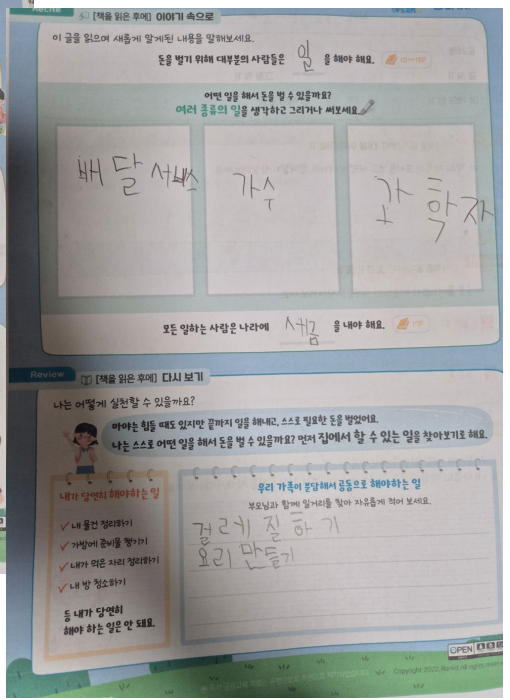 [책을 읽은 후에] 이야기 속으로
이 글을 읽으며 새롭게 알게된 내용을 말해보세요.
돈을 벌기 위해 대부분의 사람들은 일 을 해야 해요.
어떤 일을 해서 돈을 벌 수 있을까요?
여러 종류의 일을 생각하고 그리거나 써보세요.
배달 서비스
가수
과학자
모든 일하는 사람은 나라에 세금 을 내야 해요.
Review
[책을 읽은 후에] 다시 보기
나는 어떻게 실천할 수 있을까요?
마야는 힘들 때도 있지만 끝까지 일을 해내고, 스스로 필요한 돈을 벌었어요.
나는 스스로 어떤 일을 해서 돈을 벌 수 있을까요? 먼저 집에서 할 수 있는 일을 찾아보기로 해요.
내가 당연히 해야하는 일
✓ 내 물건 정리하기
✓ 가방에 준비물 챙기기
✓ 내가 먹은 자리 정리하기
✓ 내 방 청소하기
등 내가 당연히
해야 하는 일은 안 돼요.
우리 가족이 분담해서 공동으로 해야하는 일
부모님과 함께 일거리를 찾아 자유롭게 적어 보세요.
걸레질하기
요리 만들기
OPEN